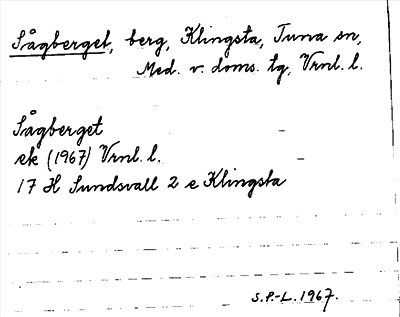 Sågberget, berg, Klingsta, Tuna sn,
Med. v. doms. tg, Vrnl. l.
Sågberget
ek (1967) Vrnl. l.
17 H Sundsvall 2 e Klingsta
S.P.-L. 1967.